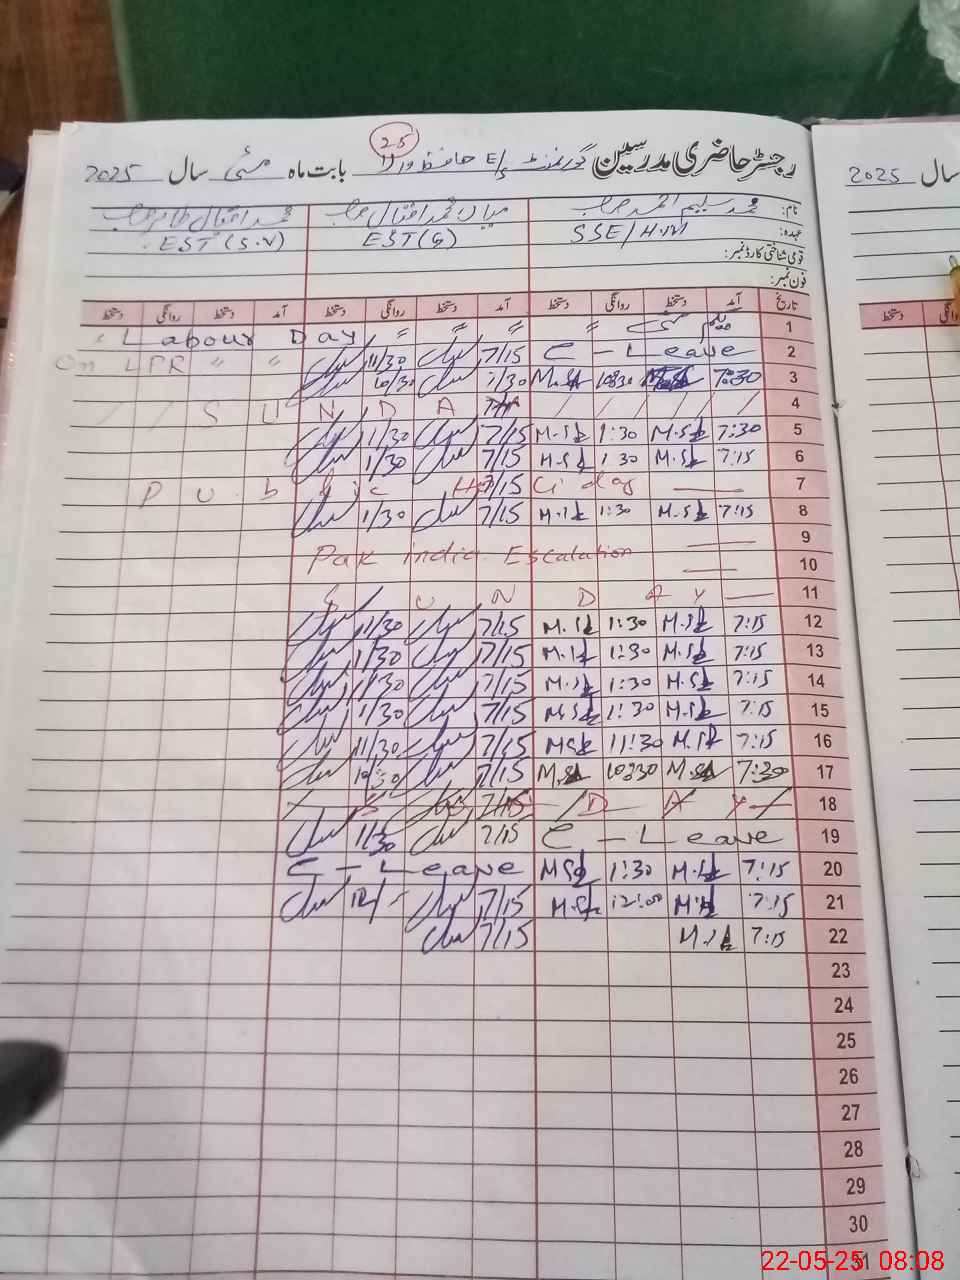 25
رجسٹر حاضری مدرسین گورنمنٹ E/S حافظ والا بابت ماہ مئی سال 2025
سال 2025
نام: محمد سلیم احمد صاحب میاں محمد اقبال صاحب محمد اقبال طاہر صاحب
عہدہ: SSE/H.M EST (G) EST (S.V)
قومی شناختی کارڈ نمبر:
فون نمبر:
تاریخ آمد دستخط روانگی دستخط آمد دستخط روانگی دستخط آمد دستخط روانگی دستخط
دستخط
1 یکم مئی " " " " Day Labour "
2 C - Leave 7/15 11/30 " " On LPR
3 7:30 10:30 M.S 7/30 10/30
4 / / / / / A D N U S / /
5 7:30 M.S 1:30 M.S 7/15 1/30
6 7:15 M.S 1:30 M.S 7/15 1/30
7 Public Holiday 7/15
8 7:15 M.S 1:30 M.S 7/15 1/30
9
10 Pak india Escalation
11 S U N D A Y
12 7:15 M.S 1:30 M.S 7/15 11/30
13 7:15 M.S 1:30 M.S 7/15 1/30
14 7:15 M.S 1:30 M.S 7/15 1/30
15 7:15 M.S 1:30 M.S 7/15 1/30
16 7:15 M.S 11:30 M.S 7/15 11/30
17 7:30 M.S 10:30 M.S 7/15 10:30
18 Y A D 7/15 S
19 C - Leave 7/15 1/30
20 7:15 M.S 1:30 M.S C - Leave
21 7:15 M.S 12:00 M.S 7/15 12/-
22 7:15 M.S 7/15
23
24
25
26
27
28
29
30
31
22-05-25 08:08